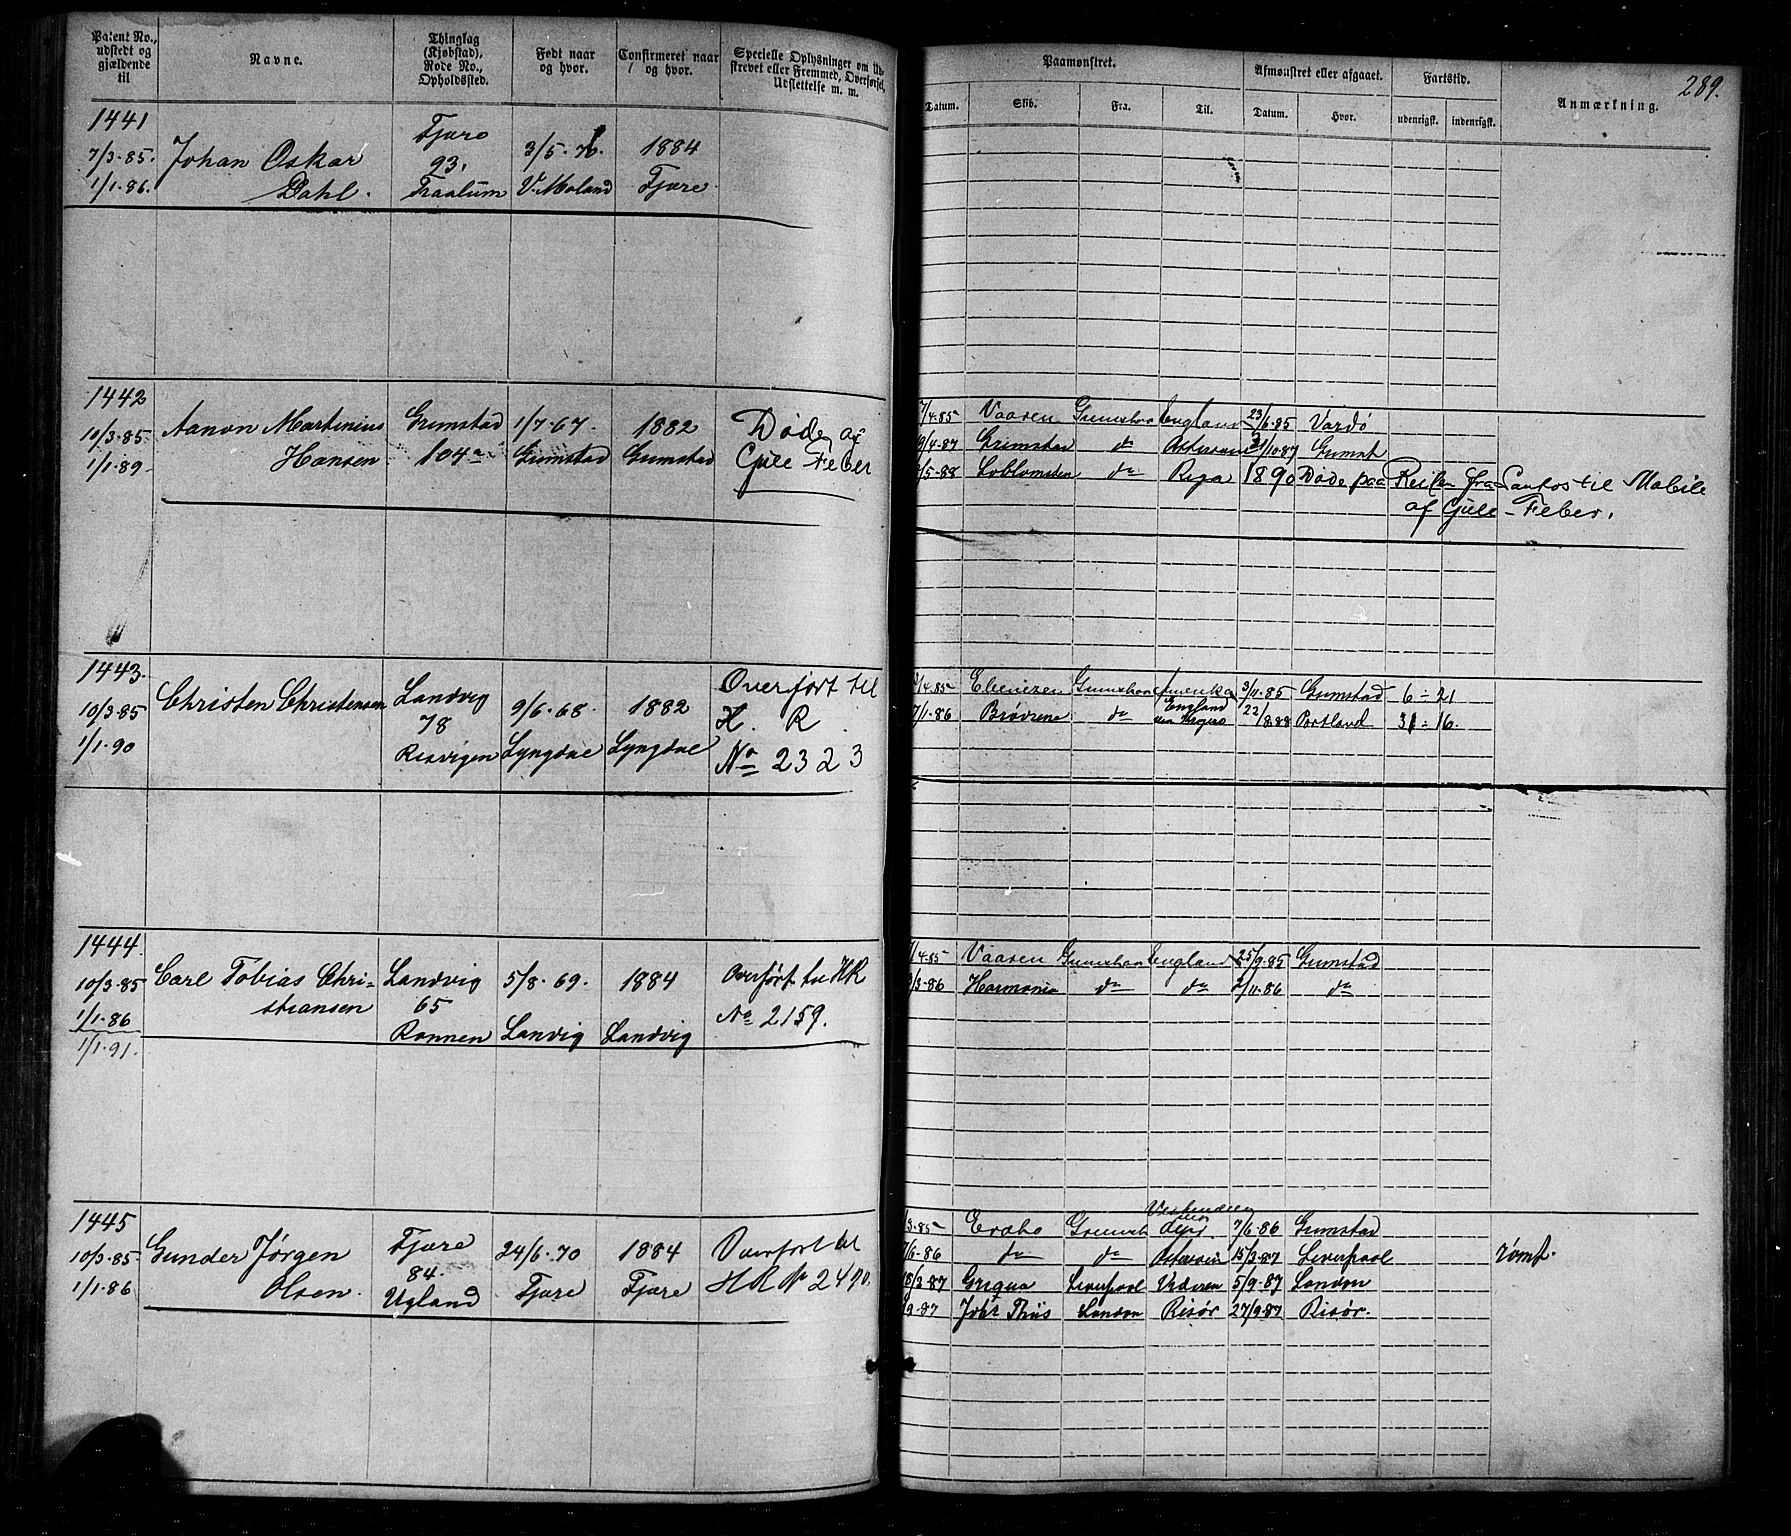 289.
Patent No., udstedt og gjældende til
Navne.
Thinglag (Kjøbstad), Rode No., Opholdssted.
Født naar og hvor.
Confirmeret naar og hvor.
Specielle Oplysninger om
Udslettelse m. m.
Paamønstret.
Afmønstret eller afgaaet.
Fartstid.
Anmærkning.
Datum. Skib. Fra. Til. Datum. Hvor. udenrigsk. indenrigsk.
1441
7/3.85. Johan Oskar Fjære 3/5. 1884
1/1.86. Dahl. 93, V. Moland Fjære.
1442
10/3.85. Aanon Martinius Grimstad 1/7.67. 1882 Døde af
1/1.89. Hansen 104a Grimstad Grimstad Gule Feber
7/4.85 Vaaren England 23/6.85 Vardø
9/4.87 Grimstad do Grimst
5.88 do Riga 1890 Døde paa Reisen fra Santos til Mobile
af Gule-Feber.
1443.
10/3.85 Christen Christensen Landvig 9/6.68. 1882 Overført til
1/1.90 78 Lyngdal Lyngdal H. R.
Resvigen No 2323
/4.85 Ebenezer Amerika 3/11.85 Grimstad 6 - 21
7/1.86 Brødrene do England 22/8.88 Portland 31 - 16.
1444.
10/3.85 Carl Tobias Chri- Landvig 5/8.69. 1884 Overført til HR
1/1.86 stiansen 65 No 2159.
1/1.91. Rønnen Landvig Landvig
/4.85 Vaaren England 25/9.85 Grimstad
/3.86 Harmonia do do /11.86 do
1445
10/3.85 Gunder Jørgen Fjære 24/6.70 1884 Overført til
1/1.86 Olsen. 84. Fjære Fjære HR No 2490.
Ugland
/3.85 Vestindien 7/6.86 Grimstad
7/6.86 do do 15/3.87 Liverpool rømt.
18/3.87 Griqua Liverpool 5/9.87 London
/9.87 Johs Thiis London Risør 27/9.87 Risør.